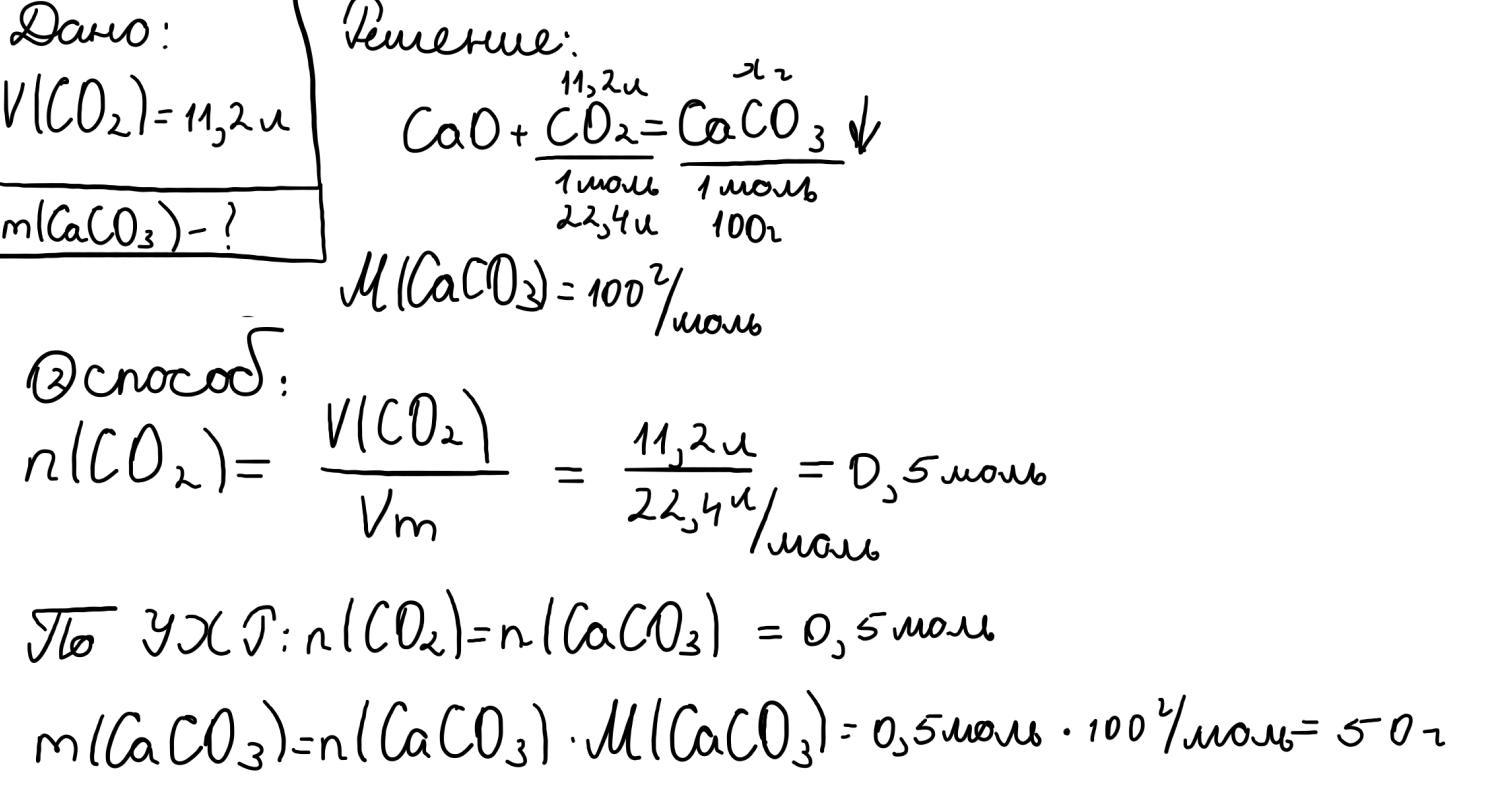 Дано:
V(CO₂)=11,2л
m(CaCO₃)-?
Решение:
11,2л xг
CaO+CO₂=CaCO₃↓
1моль 1моль
22,4л 100г
M(CaCO₃)=100г/моль
② способ:
n(CO₂)= V(CO₂)/Vm = 11,2л/22,4л/моль =0,5моль
По УХР: n(CO₂)=n(CaCO₃) =0,5моль
m(CaCO₃)=n(CaCO₃)·M(CaCO₃)=0,5моль·100г/моль=50г